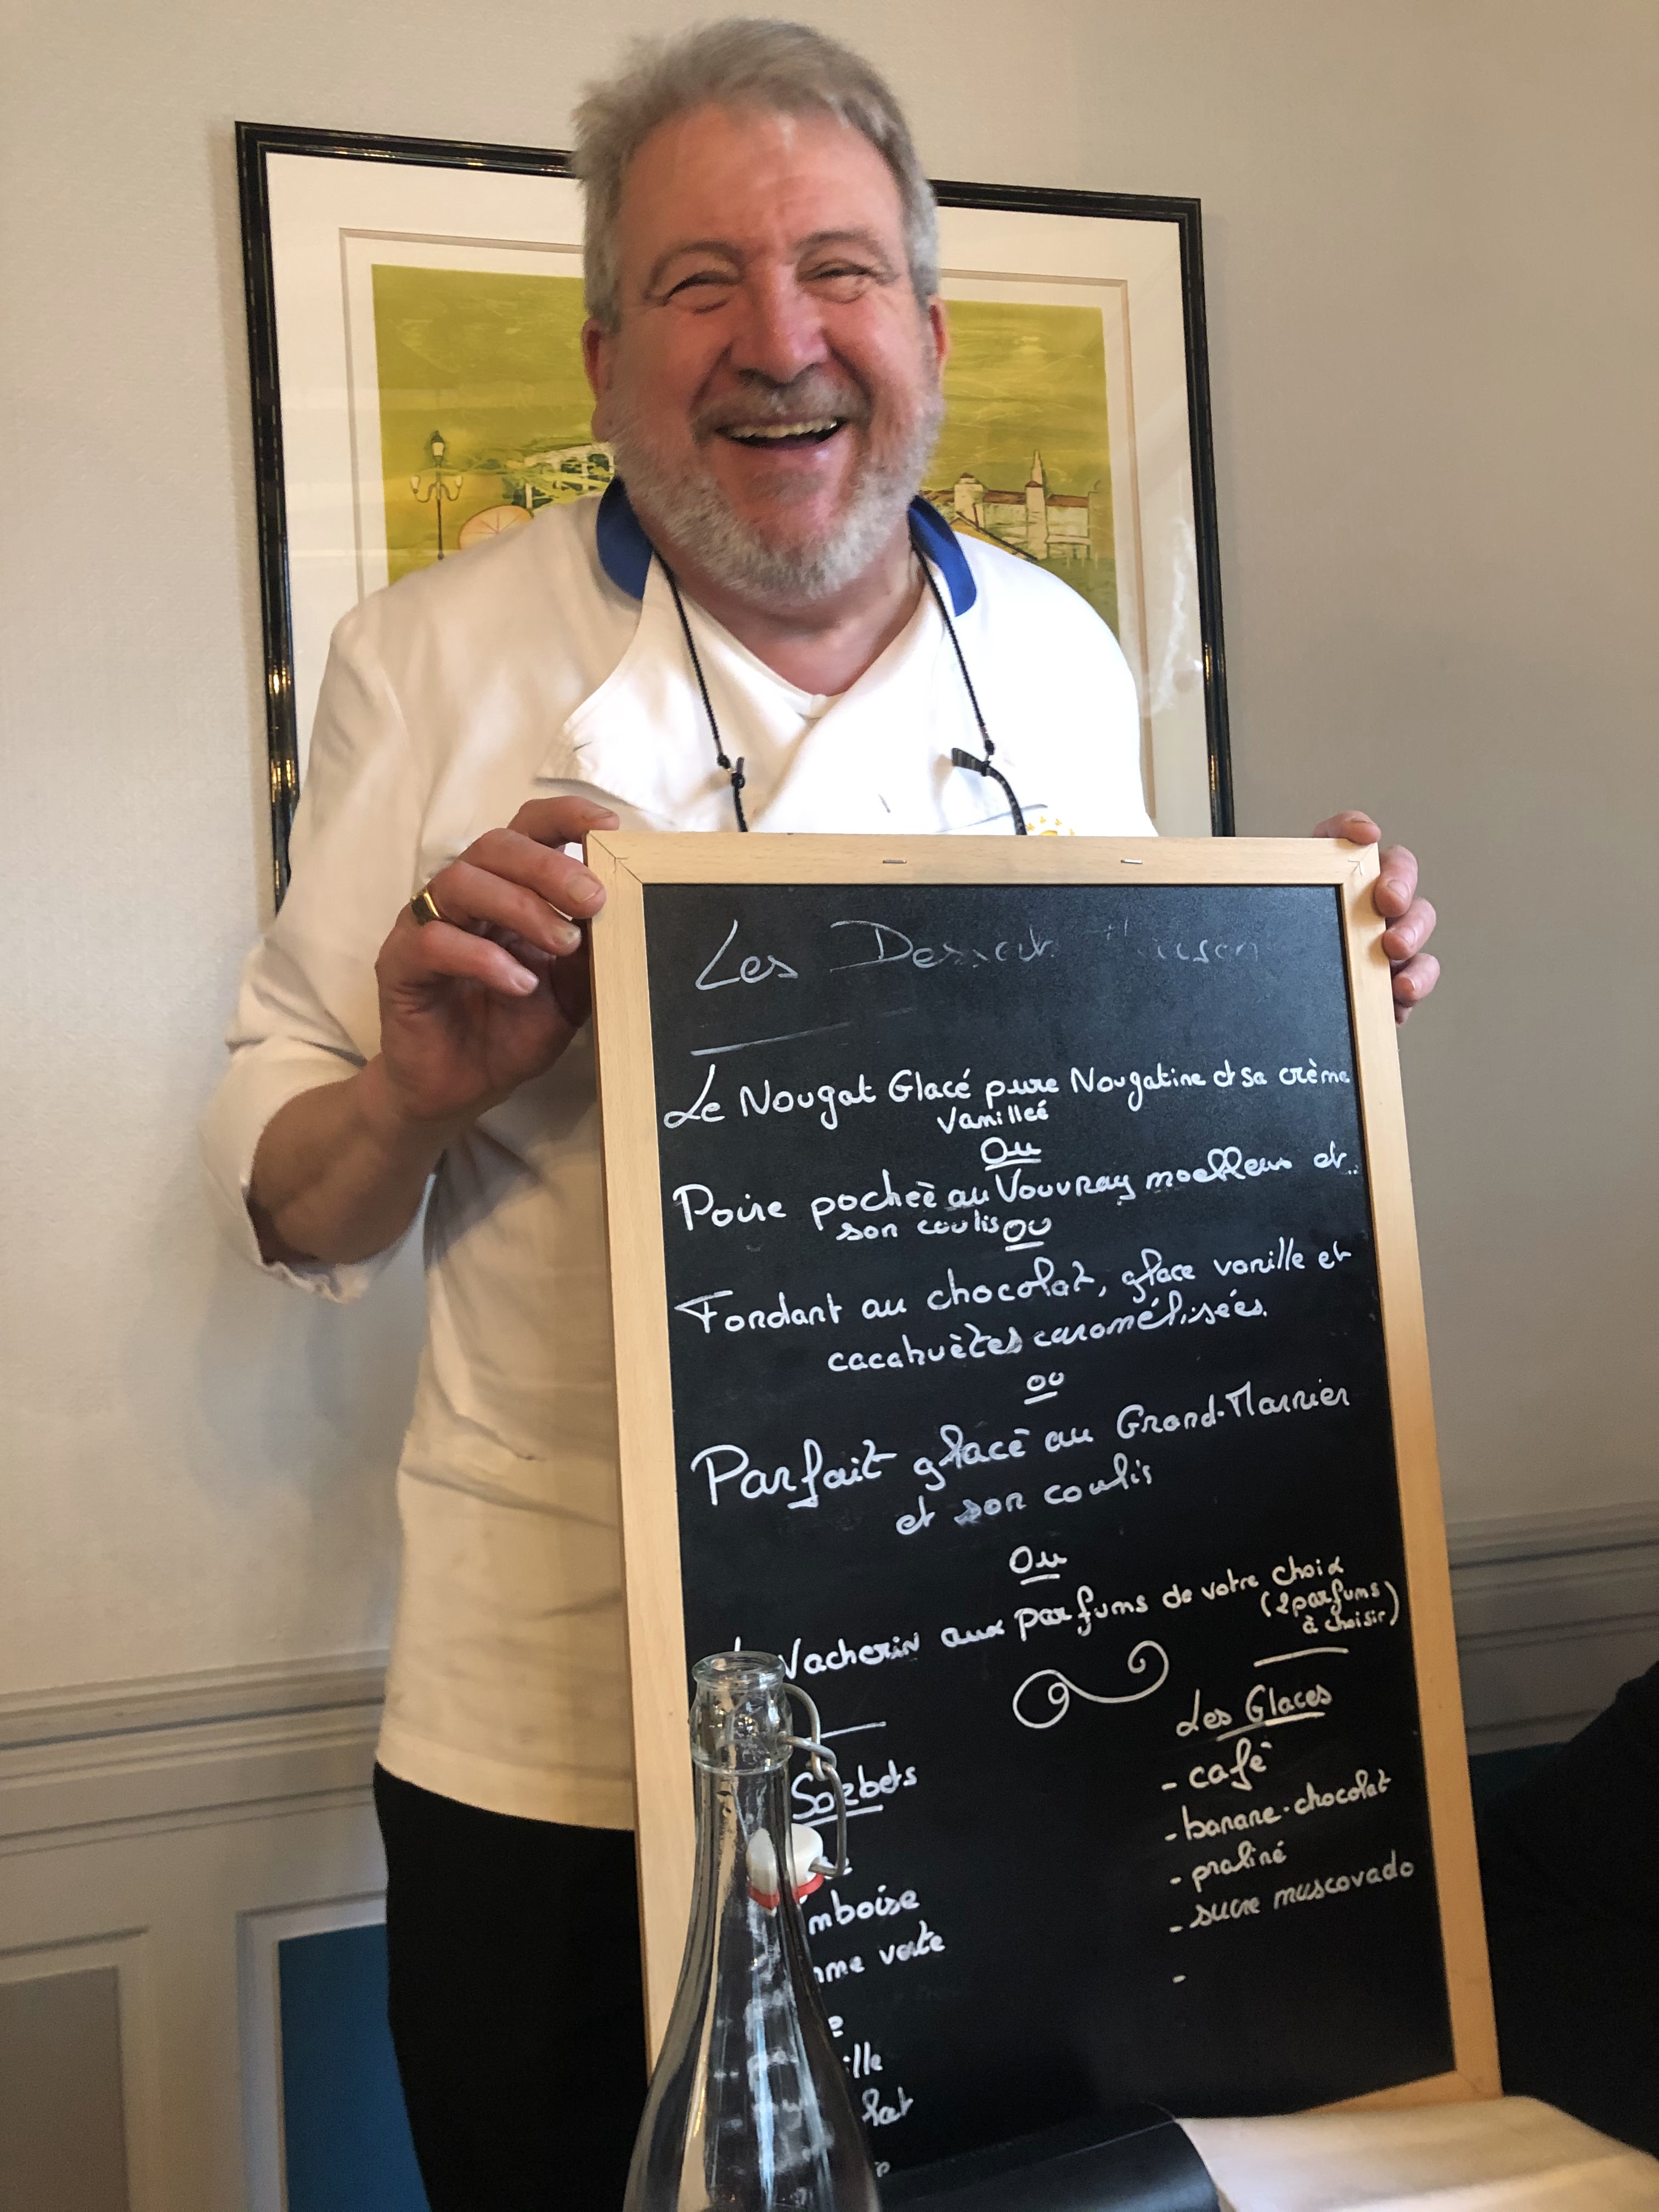 Les Desserts Maison
Le Nougat Glacé pure Nougatine et sa crème
Vanillée
Ou
Poire pochée au Vouvray moelleux et
son coulis
ou
Fondant au chocolat, glace vanille et
cacahuètes caramélisées.
ou
Parfait glacé au Grand-Marnier
et son coulis
Ou
Vacherin aux parfums de votre choix
(2 parfums
à choisir)
Sorbets
mboise
me verte
ille
lat
Les Glaces
- café
- banane-chocolat
- praliné
- sucre muscovado
-